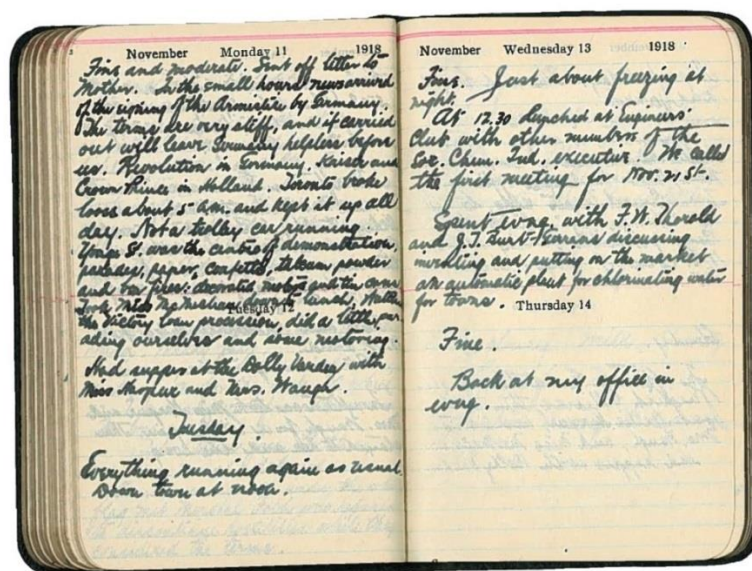 November Monday 11 1918
Fine and moderate. Sent off letter to
Mother. In the small hours news arrived
of the signing of the Armistice by Germany.
The terms are very stiff, and if carried
out will leave Germany helpless before
us. Revolution in Germany. Kaiser and
Crown Prince in Holland. Toronto broke
loose about 5 a.m. and kept it up all
day. Not a trolley car running.
Yonge St. was the centre of demonstration,
parades, paper, confetti, talcum powder
and bon fires: decorated motors and tin cans
Took Miss McMichael down to lunch,
Tuesday 12
the Victory Loan procession, did a little par
ading ourselves and some motoring.
Had supper at the Dolly Varden with
Miss and Mrs. Waugh.
Tuesday
Everything running again as usual.
Down town at noon.
November Wednesday 13 1918
Fine. Just about freezing at
night.
At 12.30 lunched at Engineers'
Club with other members of the
Soc. Chem. Ind. executive. We called
the first meeting for Nov. 21st.
Spent evng. with F.W. Thorold
and J.T. Burt-Gerrans discussing
inventing and putting on the market
an automatic plant for chlorinating water
for towns.
Thursday 14
Fine.
Back at my office in
evng.